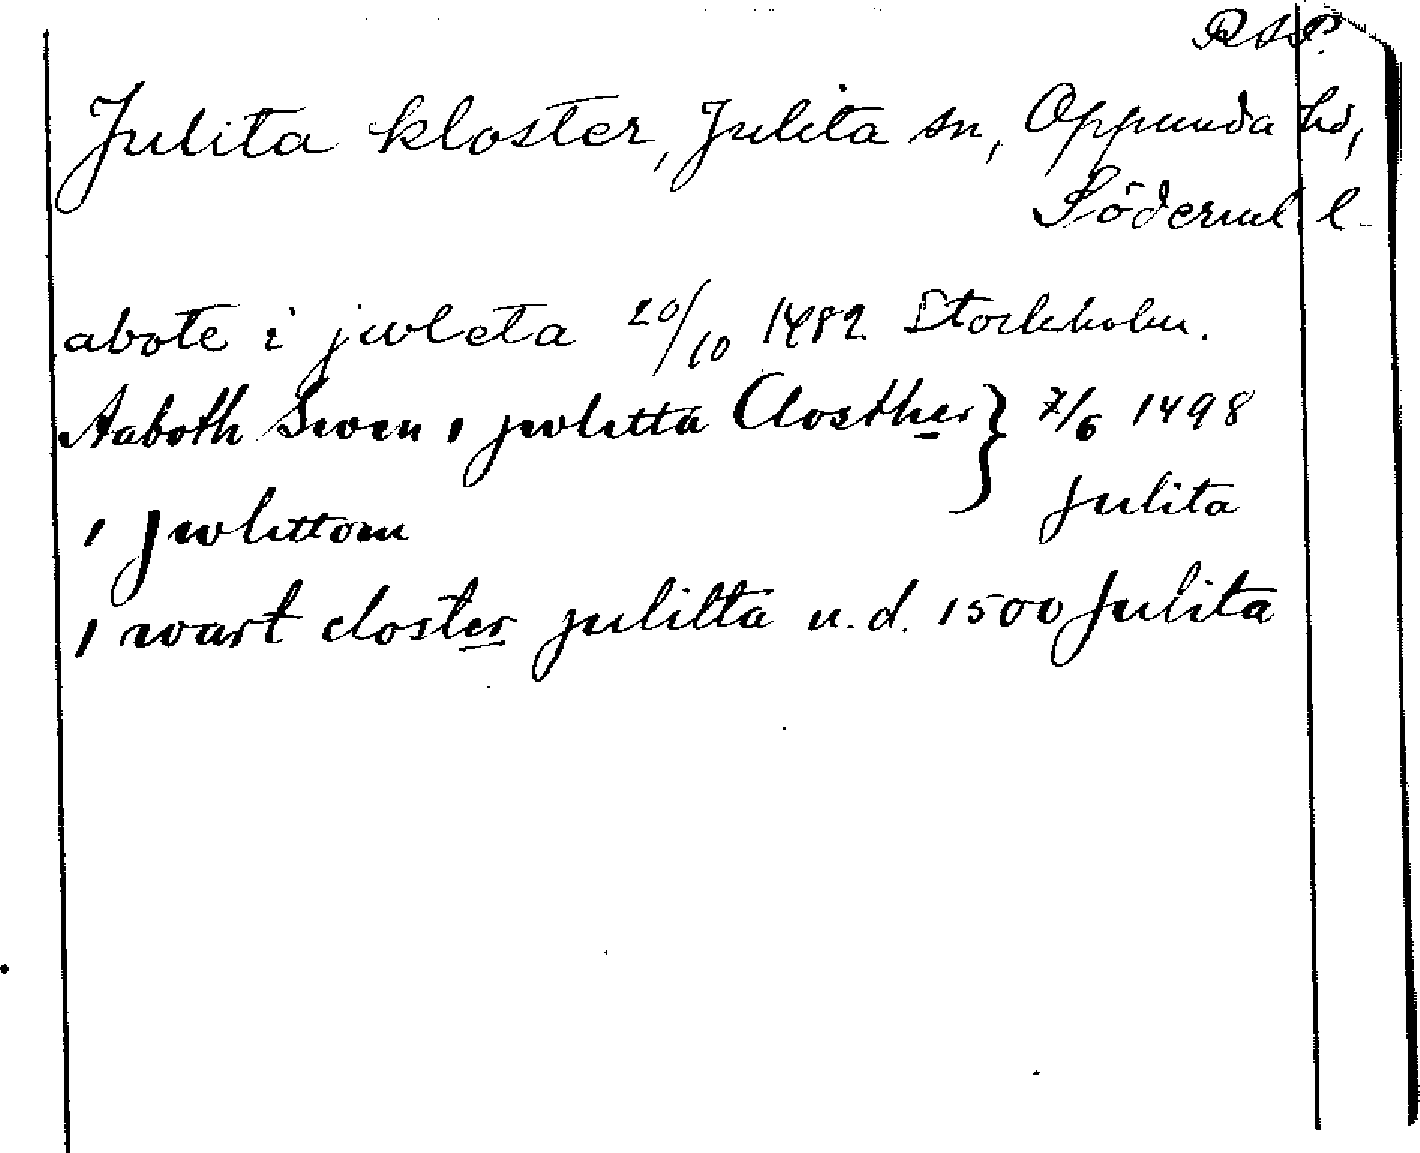 RAP.
Julita kloster, Julita sn, Oppunda hd,
Söderml. l.
abote i jwleta 20/10 1482 Stockholm.
Aaboth Swen i jwletta Closther } 7/6 1498
i jwlettom Julita
i wart closter julitta u. d. 1500 Julita